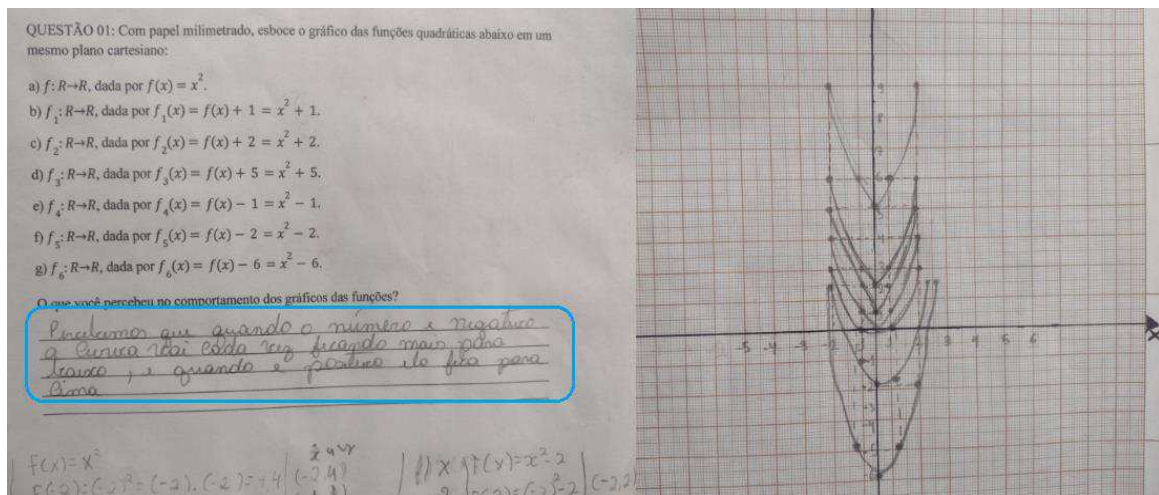 QUESTÃO 01: Com papel milimetrado, esboce o gráfico das funções quadráticas abaixo em um
mesmo plano cartesiano:
a) f: R→R, dada por f(x) = x².
b) f₁: R→R, dada por f₁(x) = f(x) + 1 = x² + 1.
c) f₂: R→R, dada por f₂(x) = f(x) + 2 = x² + 2.
d) f₃: R→R, dada por f₃(x) = f(x) + 5 = x² + 5.
e) f₄: R→R, dada por f₄(x) = f(x) − 1 = x² − 1.
f) f₅: R→R, dada por f₅(x) = f(x) − 2 = x² − 2.
g) f₆: R→R, dada por f₆(x) = f(x) − 6 = x² − 6.
O que você percebeu no comportamento dos gráficos das funções?
que quando o número é negativo
a curva vai cada vez ficando mais para
baixo, e quando é positivo ela fica para
cima
f(x)=x²
f(-2)=(-2)²=(-2).(-2)=+4
(-2,4)
f) f(x)=x²-2
(-2,2)
9
8
7
6
5
4
3
-5 -4 -2 -1 1 2 3 4 5 6
x